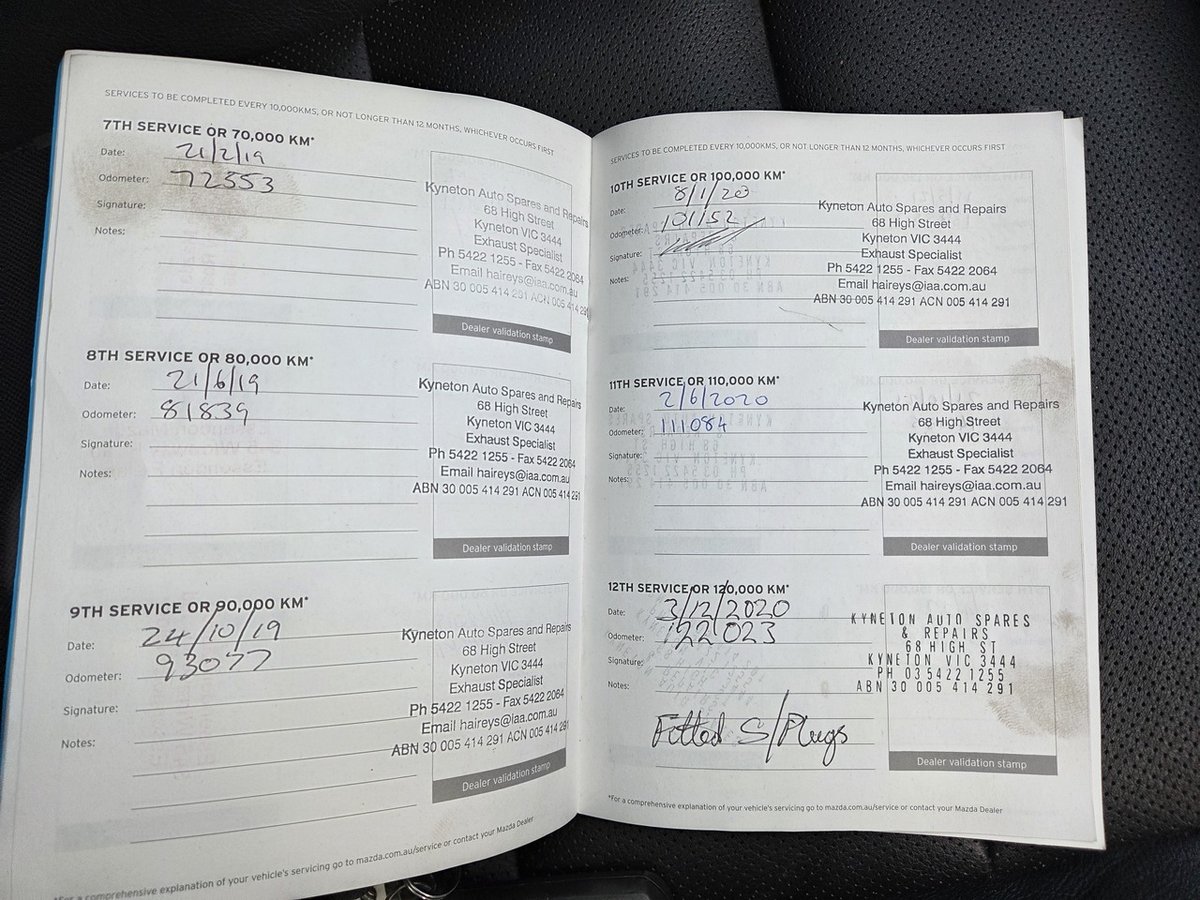 SERVICES TO BE COMPLETED EVERY 10,000KMS, OR NOT LONGER THAN 12 MONTHS, WHICHEVER OCCURS FIRST
7TH SERVICE OR 70,000 KM*
Date: 21/2/19
Odometer: 72353
Signature:
Notes:
Kyneton Auto Spares and Repairs
68 High Street
Kyneton VIC 3444
Exhaust Specialist
Ph 5422 1255 - Fax 5422 2064
Email haireys@iaa.com.au
ABN 30 005 414 291 ACN 005 414 291
Dealer validation stamp
8TH SERVICE OR 80,000 KM*
Date: 21/6/19
Odometer: 81839
Signature:
Notes:
Kyneton Auto Spares and Repairs
68 High Street
Kyneton VIC 3444
Exhaust Specialist
Ph 5422 1255 - Fax 5422 2064
Email haireys@iaa.com.au
ABN 30 005 414 291 ACN 005 414 291
Dealer validation stamp
9TH SERVICE OR 90,000 KM*
Date: 24/10/19
Odometer: 93077
Signature:
Notes:
Kyneton Auto Spares and Repairs
68 High Street
Kyneton VIC 3444
Exhaust Specialist
Ph 5422 1255 - Fax 5422 2064
Email haireys@iaa.com.au
ABN 30 005 414 291 ACN 005 414 291
Dealer validation stamp
*For a comprehensive explanation of your vehicle's servicing go to mazda.com.au/service or contact your Mazda Dealer
SERVICES TO BE COMPLETED EVERY 10,000KMS, OR NOT LONGER THAN 12 MONTHS, WHICHEVER OCCURS FIRST
10TH SERVICE OR 100,000 KM*
Date: 8/1/20
Odometer: 101152
Signature:
Notes:
Kyneton Auto Spares and Repairs
68 High Street
Kyneton VIC 3444
Exhaust Specialist
Ph 5422 1255 - Fax 5422 2064
Email haireys@iaa.com.au
ABN 30 005 414 291 ACN 005 414 291
Dealer validation stamp
11TH SERVICE OR 110,000 KM*
Date: 2/6/2020
Odometer: 111084
Signature:
Notes:
Kyneton Auto Spares and Repairs
68 High Street
Kyneton VIC 3444
Exhaust Specialist
Ph 5422 1255 - Fax 5422 2064
Email haireys@iaa.com.au
ABN 30 005 414 291 ACN 005 414 291
Dealer validation stamp
12TH SERVICE OR 120,000 KM*
Date: 3/12/2020
Odometer: 122023
Signature:
Notes:
Fitted S/Plugs
KYNETON AUTO SPARES
& REPAIRS
68 HIGH ST
KYNETON VIC 3444
PH 03 5422 1255
ABN 30 005 414 291
Dealer validation stamp
*For a comprehensive explanation of your vehicle's servicing go to mazda.com.au/service or contact your Mazda Dealer